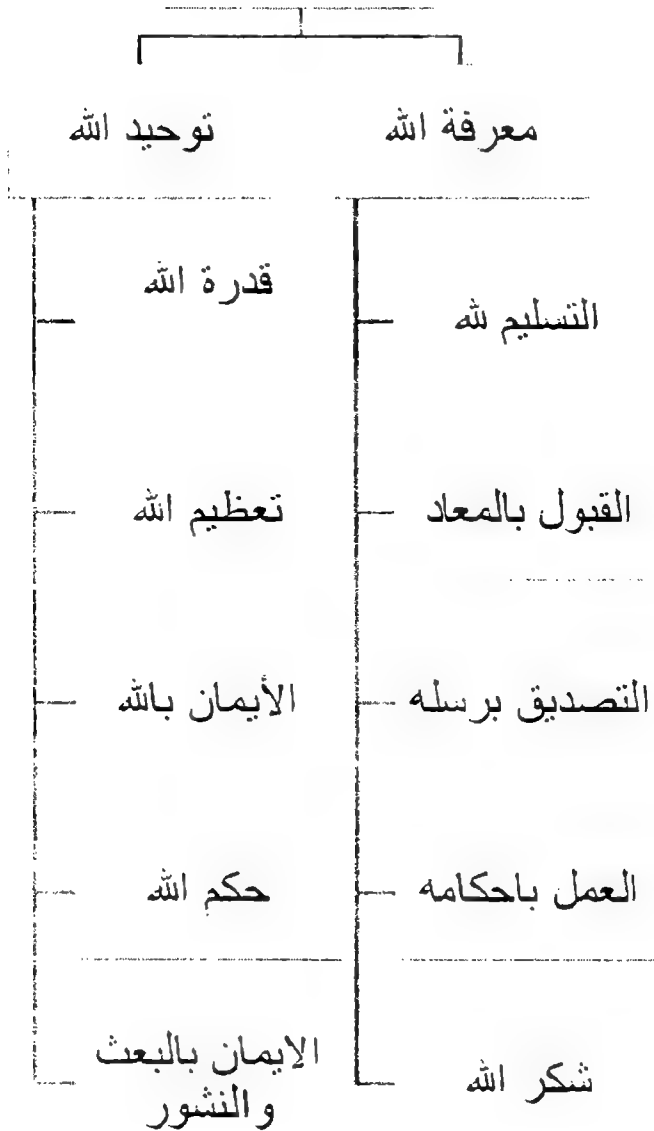 معرفة الله
التسليم لله
القبول بالمعاد
التصديق برسله
العمل باحكامه
شكر الله
توحيد الله
قدرة الله
تعظيم الله
الأيمان بالله
حكم الله
الايمان بالبعث
والنشور